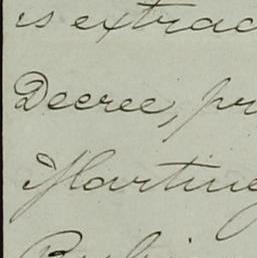 is extrac
Decree, pr
Martine